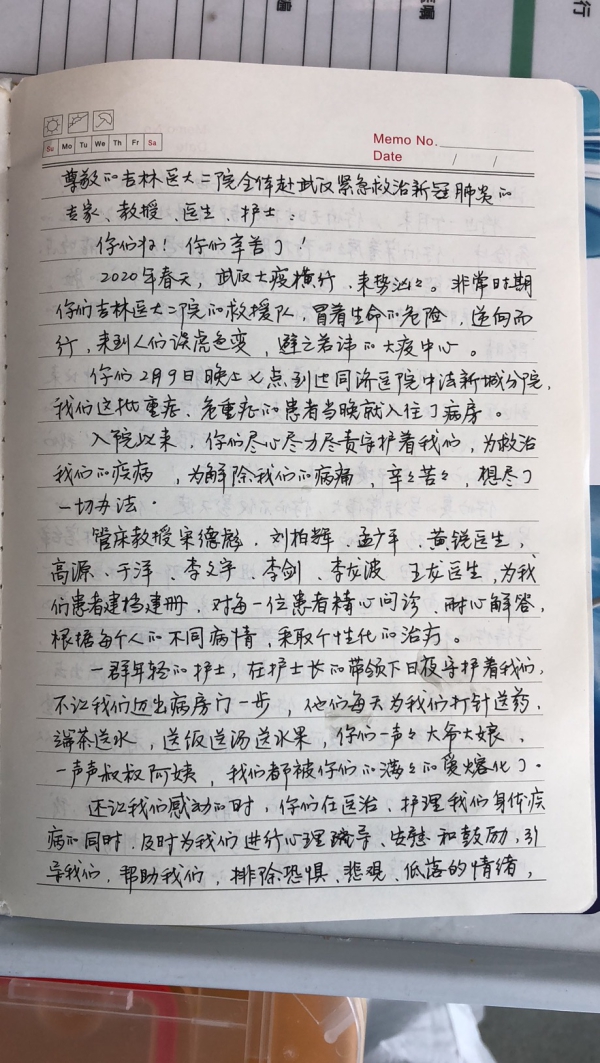 Su Mo Tu We Th Fr Sa
Memo No.
Date / /
尊敬的吉林医大二院全体赴武汉紧急救治新冠肺炎的
专家、教授、医生、护士：
你们好！你们辛苦了！
2020年春天，武汉大疫横行、来势汹々。非常时期
你们吉林医大二院的救援队，冒着生命的危险，逆向而
行，来到人们谈虎色变，避之若讳的大疫中心。
你们2月9日晚上七点到达同济医院中法新城分院，
我们这批重症、危重症的患者当晚就入住了病房。
入院以来，你们尽心尽力尽责守护着我们，为救治
我们的疾病，为解除我们的病痛，辛々苦々，想尽了
一切办法。
管床教授宋德彪、刘柏辉、孟广平、黄锐医生，
高源、于洋、李文宇、李剑、李龙波、王龙医生，为我
们患者建档建册，对每一位患者精心问诊、耐心解答，
根据每个人的不同病情，采取个性化的治疗。
一群年轻的护士，在护士长的带领下日夜守护着我们，
不让我们迈出病房门一步，他们每天为我们打针送药、
端茶送水，送饭送汤送水果，你们一声々大爷大娘、
一声声叔叔阿姨，我们都被你们的满々的爱熔化了。
还让我们感动的时，你们在医治、护理我们身体疾
病的同时，及时为我们进行心理疏导、安慰和鼓励，引
导我们，帮助我们，排除恐惧、悲观、低落的情绪，